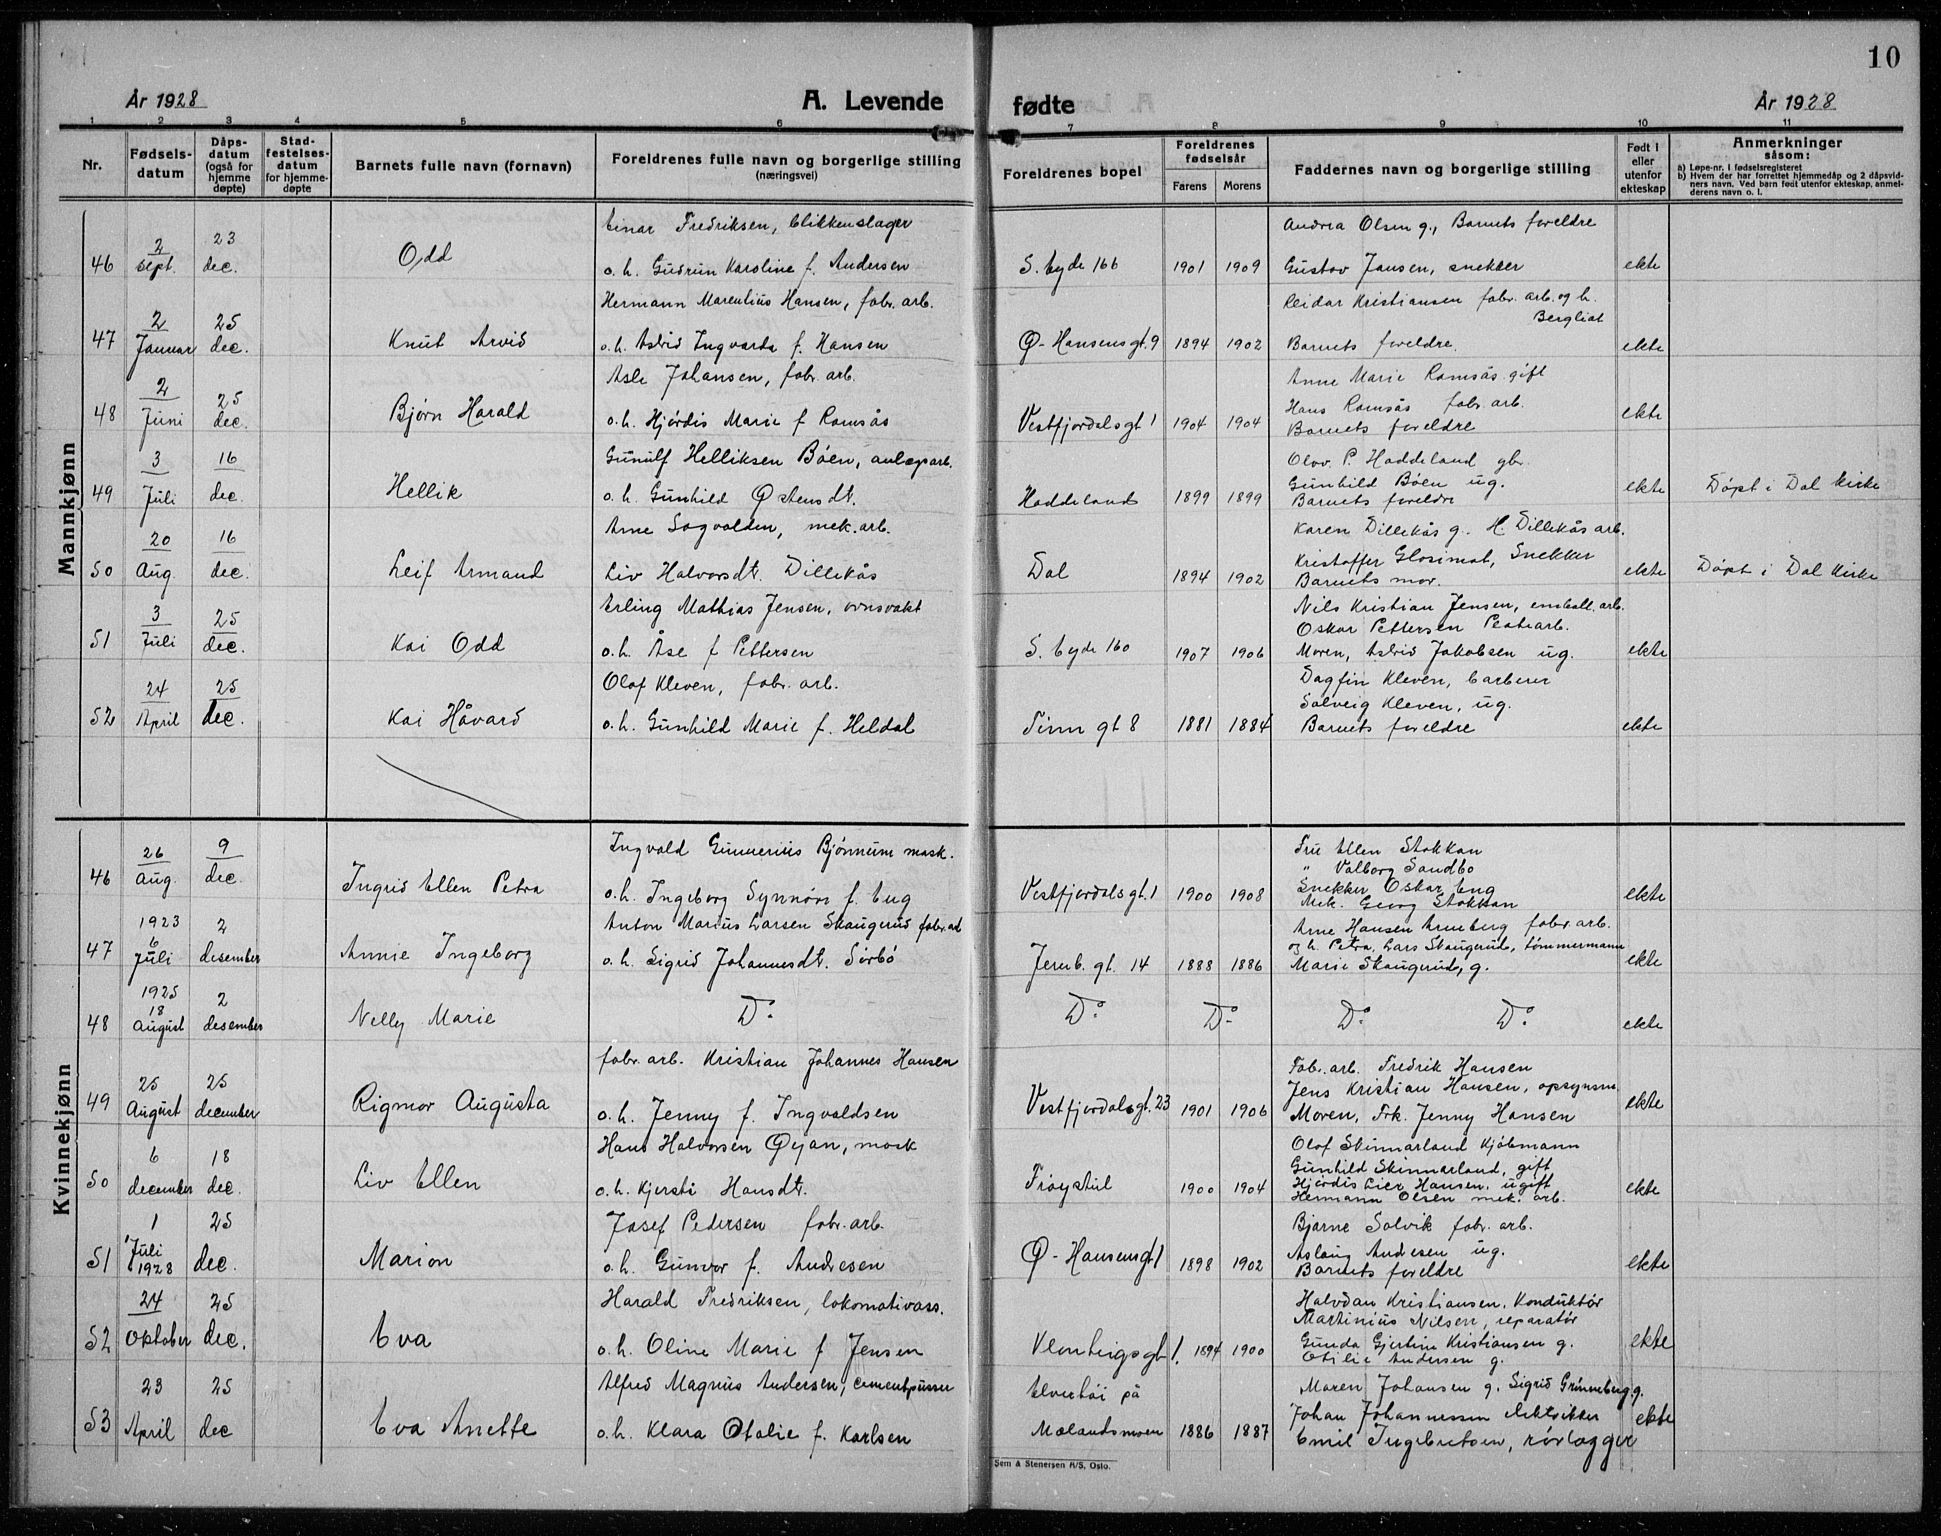 10
År 1928
A. Levende fødte
År 1928
1 2 3 4 5 6 7 8 9 10 11
Nr.
Fødsels-
datum
Dåps-
datum
(også for
hjemme
døpte)
Stad-
festelses-
datum
for hjemme-
døpte
Barnets fulle navn (fornavn)
Foreldrenes fulle navn og borgerlige stilling
(næringsvei)
Foreldrenes bopel
Foreldrenes
fødselsår
Farens Morens
Faddernes navn og borgerlige stilling
Født i
eller
utenfor
ekteskap
Anmerkninger
såsom:
a) Løpe-nr. i fødselsregisteret
b) Hvem der har forrettet hjemmedåp og 2 dåpsvid-
ners navn. Ved barn født utenfor ekteskap, anmel-
derens navn o. l.
Mannkjønn
Einar Fredriksen, blikkenslager
Andrea Olsen g., Barnets foreldre
2 23
46 sept. dec. Odd o. h. Gudrun Karoline f. Andersen S. byde 166 1901 1909 Gustav Jansen, snekker ekte
Hermann Marentius Hansen, fabr. arb.
Reidar Kristiansen fabr. arb. og h.
Bergliot
2 25
47 Januar dec. Knut Arvid o. h. Astrid Ingvarda f. Hansen Ø-Hansensgt. 9 1894 1902 Barnets foreldre. ekte
Asle Johansen, fabr. arb.
Anne Marie Ramsås gift
2 25
Hans Ramsås fabr. arb.
48 Juni dec. Bjørn Harald o. h. Hjördis Marie f Ramsås Vestfjordalsgt 1 1904 1904 Barnets foreldre ekte
Gunulf Helliksen Böen, anlegsarb.
Olav P. Haddeland gbr.
3 16
Gunhild Böen ug.
49 Juli dec. Hellik o. h. Gunhild Östensdt. Haddeland 1899 1899 Barnets foreldre ekte Döpt i Dal Kirke
Arne Sagvolden, mek. arb.
Karen Dillekås g. H. Dillekås arb.
20 16
Kristoffer Glosimot, Snekker
50 Aug. dec. Leif Armand Liv Halvorsdt. Dillekås Dal 1894 1902 Barnets mor. ekte Döpt i Dal Kirke
Erling Mathias Jensen, ovnsvakt
Nils Kristian Jensen, emball. arb.
3 25
Oskar Pettersen
51 Juli dec. Kai Odd o. h. Åse f Pettersen S. byde 160 1907 1906 Moren, Astrid Jakobsen ug. ekte
Olaf Kleven, fabr. arb.
Dagfin Kleven, barberer
24 25
Solveig Kleven, ug.
52 April dec. Kai Håvard o. h. Gunhild Marie f. Heldal Tinn gt 8 1881 1884 Barnets foreldre ekte
Kvinnekjønn
Ingvald Gunnerius Bjønnum mask.
Fru Ellen Stokkan
" Valborg Sandbo
26 9
Snekker Oskar Eng
46 Aug. dec. Ingrid Ellen Petra o. h. Ingeborg Synnöve f. Eng Vestfjordalsgt. 1 1900 1908 Mek. Georg Stokkan ekte
Anton Marius Larsen Skaugerud fabr. ad
Arne Hansen Arneberg fabr. arb.
1923
6 2
og h. Petra, Lars Skaugerud, tömmermann
47 Juli desember Annie Ingeborg o. h. Sigrid Johannesdt. Sörbö Jernb. gt. 14 1888 1886 Marie Skaugerud, g. ekte
1925
18 2
48 August desember Nelly Marie Do Do Do Do Do ekte
fabr. arb. Kristian Johannes Hansen
Fabr. arb. Fredrik Hansen
25 25
Jens Kristian Hansen, opsynsm.
49 August december Rigmor Augusta o. h. Jenny f. Ingvaldsen Vestfjordalsgt. 23 1901 1906 Moren, Frk. Jenny Hansen ekte
Hans Halvorsen Øyan, mask
Olaf Skinnarland Kjöbmann
6 18
Gunhild Skinnarland, gift
Hjördis Lier Hansen, ugift
50 december dec. Liv Ellen o. h. Kjersti Hansdt. Fröystul 1900 1904 Hermann Olsen mek. arb. ekte
Josef Pedersen fabr. arb.
Bjarne Solvik fabr. arb.
1 25
Aslaug Andresen ug.
51 Juli 1928 dec. Marion o. h. Gunvor f. Andresen Ø-Hansensgt 1 1898 1902 Barnets foreldre ekte
Harald Fredriksen, lokomotivass.
Halvdan Kristiansen. Konduktör
Martinius Nilsen, reparatör
24 25
Gunda Gjertine Kristiansen g.
52 Oktober dec. Eva o. h. Oline Marie f Jensen 1. 1894 1900 Otilie Andersen g. ekte
Alfred Magnus Andersen, cementpusser
Elverhöi på
Maren Johansen g. Sigrid Grinneberg g.
23 25
Johan Johannessen elektrikker
53 April dec Eva Anette o. h. Klara Otalie f. Karlsen Mælandsmoen 1886 1887 Emil Ingebretsen, rörlægger ekte
Sem & Stenersen A/S, Oslo.